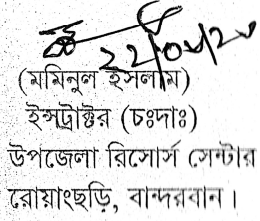 ২২/০৫/২০
(মমিনুল ইসলাম)
ইন্সট্রাক্টর (চঃদাঃ)
উপজেলা রিসোর্স সেন্টার
রোয়াংছড়ি, বান্দরবান।